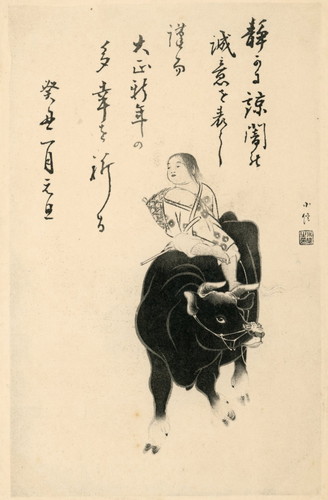 静かる諒闇の
誠意を表し
謹而
大正新年の
多幸を祈る
癸丑一月元旦
小信